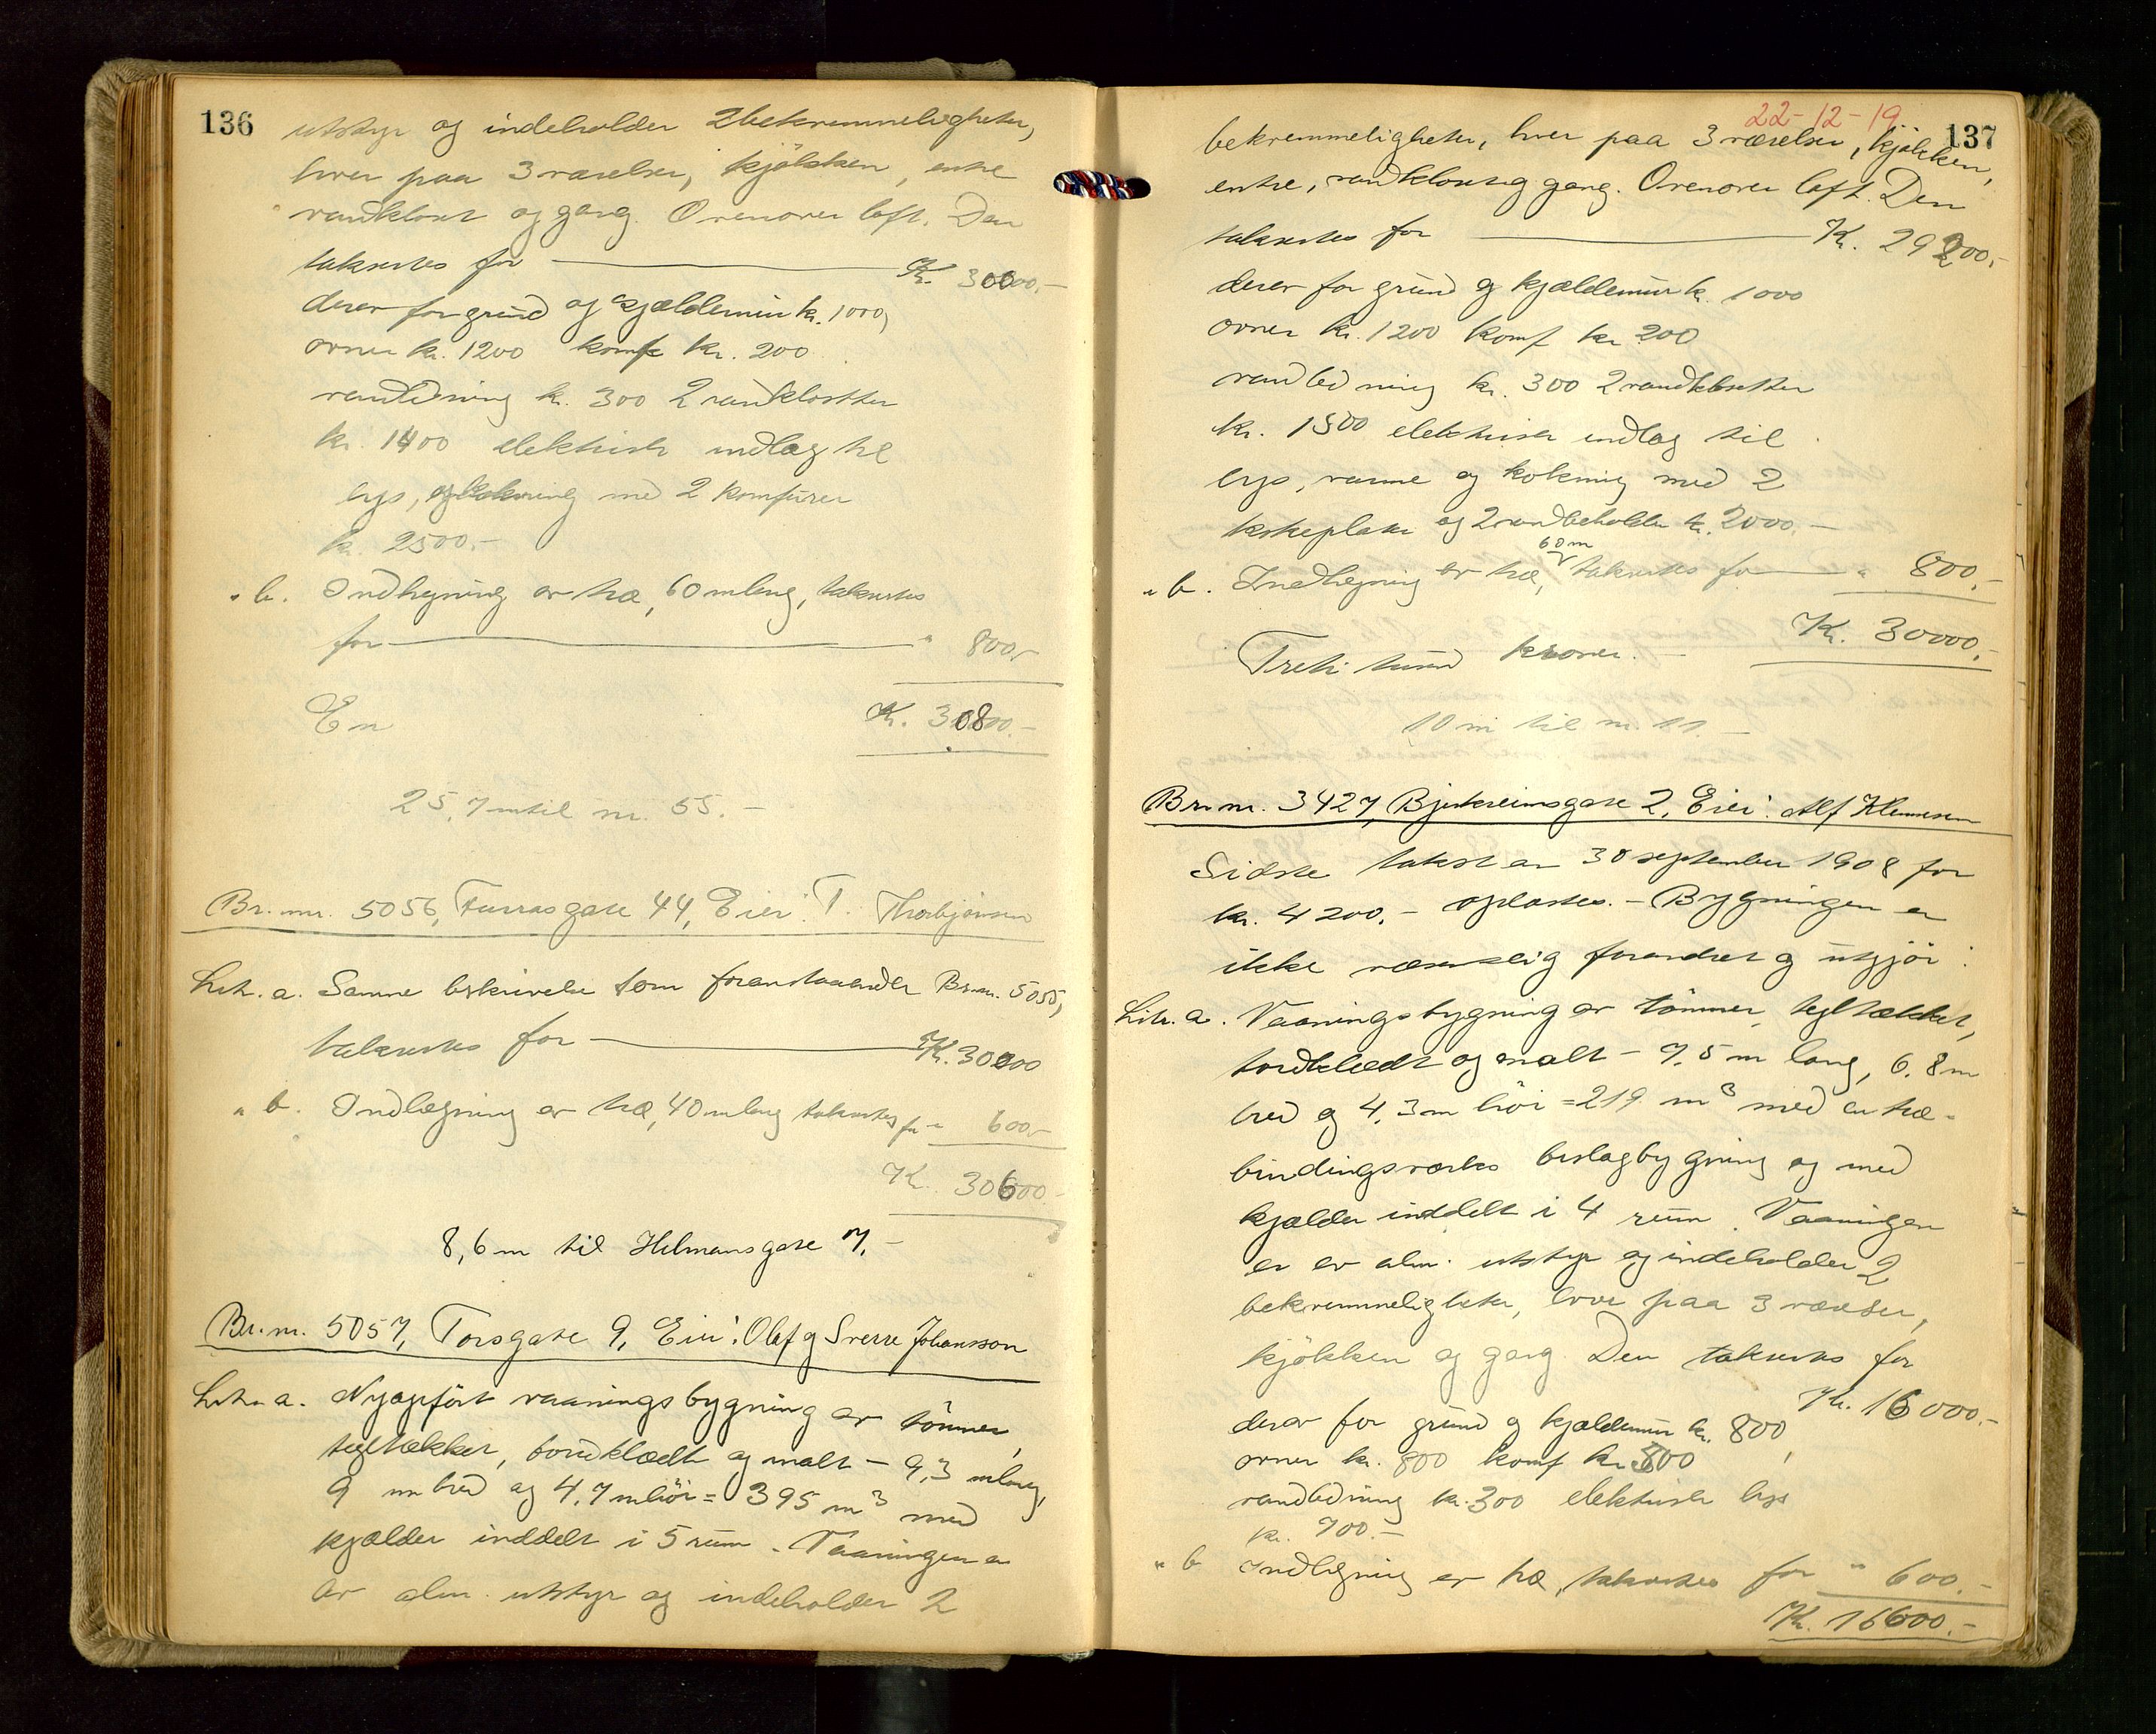 136
utstyr og indeholder 2 bekvemmeligheter,
hver paa 3 værelser, kjökken, entre
vandkloset og gang. Ovenover loft. Den
takseres for — Kr. 30000.-
derav for grund og kjældermur kr. 1000,
ovner kr. 1200 komf kr. 200
vandledning kr. 300 2 vandklosetter
kr. 1400 elektrisk indlag til
lys, og kokning med 2 komfurer
kr. 2500.-
" b. Indhegning av træ, 60 m lang, takseres
for — " 800,-
En Kr. 30800.-
25,7 m til nr. 55.-
Br. nr. 5056, Furrasgate 44, Eier: T. Thorbjörnsen
Litr. a. Samme beskrivelse som foranstaaende Br. nr. 5055,
takseres for — Kr. 30000
" b. Indhegning av træ, 40 m lang takseres for " 600,-
Kr. 30600.-
8,6 m til Helmansgate 7.-
Br. nr. 5057, Torsgate 9, Eier: Olaf og Sverre Johansson
Litr. a. Nyopfört vaaningsbygning av tömmer,
tegltækket, bordklædt og malt - 9,3 m lang,
9 m bred og 4,7 m höi = 395 m³ med
kjælder inddelt i 5 rum. Vaaningen er
av alm. utstyr og indeholder 2
22-12-19
137
bekvemmeligheter, hver paa 3 værelser, kjökken,
entre, vandkloset og gang. Ovenover loft. Den
takseres for — Kr. 29200.-
derav for grund og kjældermur kr. 1000
ovner kr. 1200 komf kr 200
vandledning kr. 300 2 vandklosetter
kr. 1500 elektrisk indlag til
lys, varme og kokning med 2
kokeplater og 2 vandbeholder kr. 2000.-
60 m
" b. Indhegning av træ, takseres for — " 800.-
Kr. 30000.-
Treti tusend kroner.-
10 m til nr. 11.-
Br. nr. 3427, Bjerkreimsgate 2, Eier: Alf Klemmesen
Sidste takst av 30 september 1908 for
kr. 4200.- oplæses. - Bygningen er
ikke væsentlig forandret og utgjör:
Litr. a. Vaaningsbygning av tömmer, tegltækket,
bordklædt og malt - 7,5 m lang, 6,8 m
bred og 4,3 m höi = 219 m³ med en træ-
bindingsverks beslagbygning og med
kjælder inddelt i 4 rum. Vaaningen
er av alm. utstyr og indeholder 2
bekvemmeligheter, hver paa 3 værelser,
kjökken og gang. Den takseres for
Kr. 16000.-
derav for grund og kjældermur kr. 800,
ovner kr. 800 komf kr. 300
vandledning kr. 300 elektrisk lys
kr. 700.-
" b Indhegning av træ, takseres for " 600.-
Kr. 16600.-